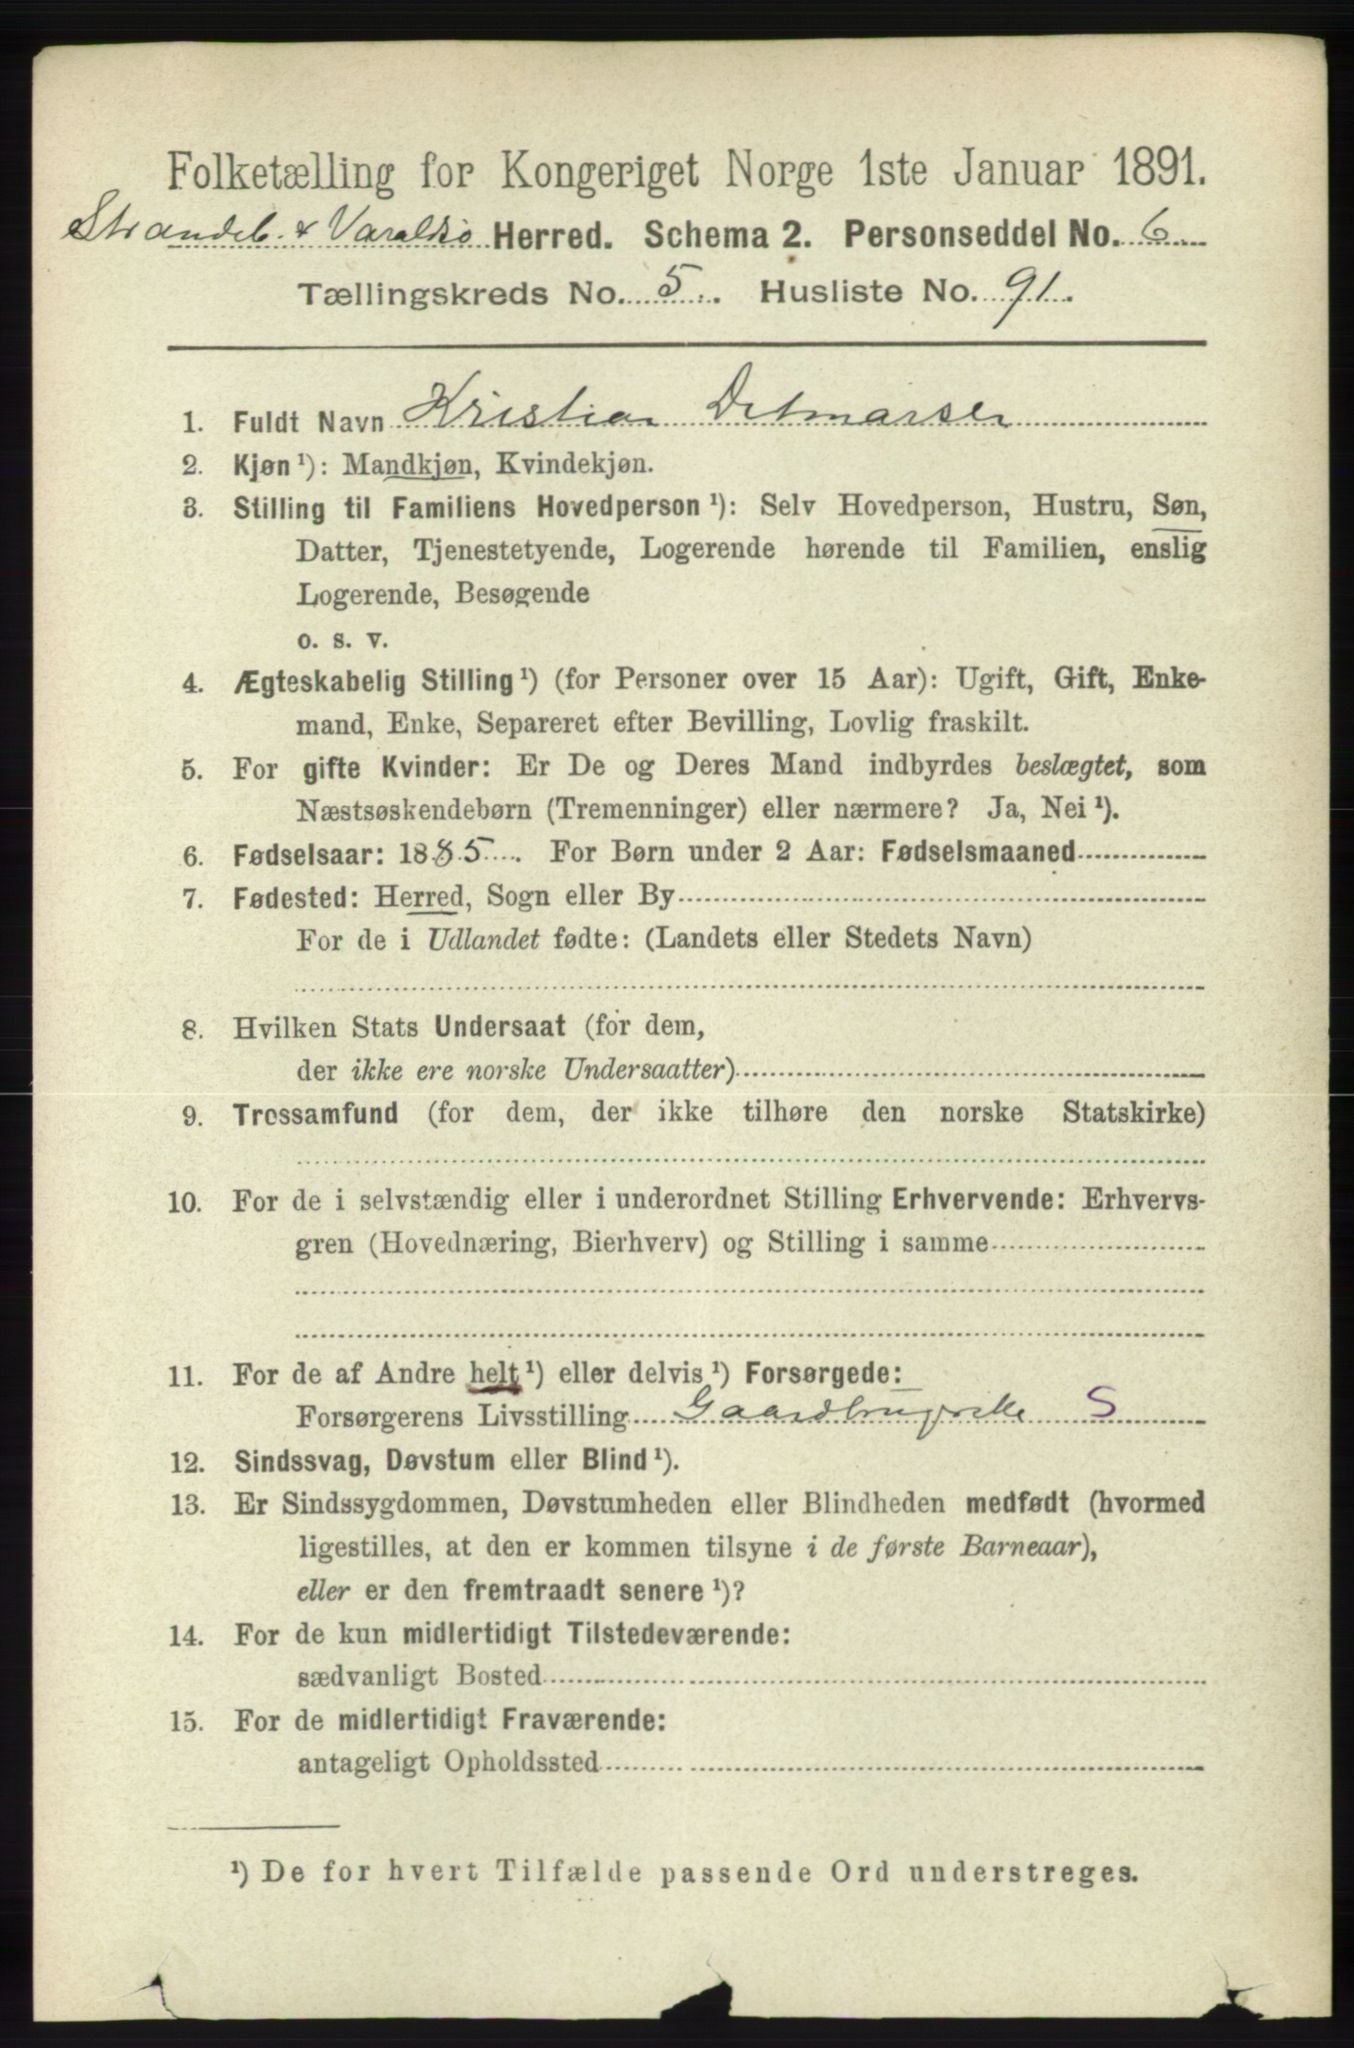 Folketælling for Kongeriget Norge 1ste Januar 1891.
Strandeb. & Varaldsø Herred. Schema 2. Personseddel No. 6
Tællingskreds No. 5. Husliste No. 91.
1. Fuldt Navn Kristian Detmarsen
2. Kjøn ¹): Mandkjøn, Kvindekjøn.
3. Stilling til Familiens Hovedperson ¹): Selv Hovedperson, Hustru, Søn,
Datter, Tjenestetyende, Logerende hørende til Familien, enslig
Logerende, Besøgende
o. s. v.
4. Ægteskabelig Stilling ¹) (for Personer over 15 Aar): Ugift, Gift, Enke-
mand, Enke, Separeret efter Bevilling, Lovlig fraskilt.
5. For gifte Kvinder: Er De og Deres Mand indbyrdes beslægtet, som
Næstsøskendebørn (Tremenninger) eller nærmere? Ja, Nei ¹).
6. Fødselsaar: 1885. For Børn under 2 Aar: Fødselsmaaned
7. Fødested: Herred, Sogn eller By
For de i Udlandet fødte: (Landets eller Stedets Navn)
8. Hvilken Stats Undersaat (for dem,
der ikke ere norske Undersaatter)
9. Trossamfund (for dem, der ikke tilhøre den norske Statskirke)
10. For de i selvstændig eller i underordnet Stilling Erhvervende: Erhvervs-
gren (Hovednæring, Bierhverv) og Stilling i samme
11. For de af Andre helt ¹) eller delvis ¹) Forsørgede:
Forsørgerens Livsstilling S
12. Sindssvag, Døvstum eller Blind ¹).
13. Er Sindssygdommen, Døvstumheden eller Blindheden medfødt (hvormed
ligestilles, at den er kommen tilsyne i de første Barneaar),
eller er den fremtraadt senere ¹)?
14. For de kun midlertidigt Tilstedeværende:
sædvanligt Bosted
15. For de midlertidigt Fraværende:
antageligt Opholdssted
¹) De for hvert Tilfælde passende Ord understreges.